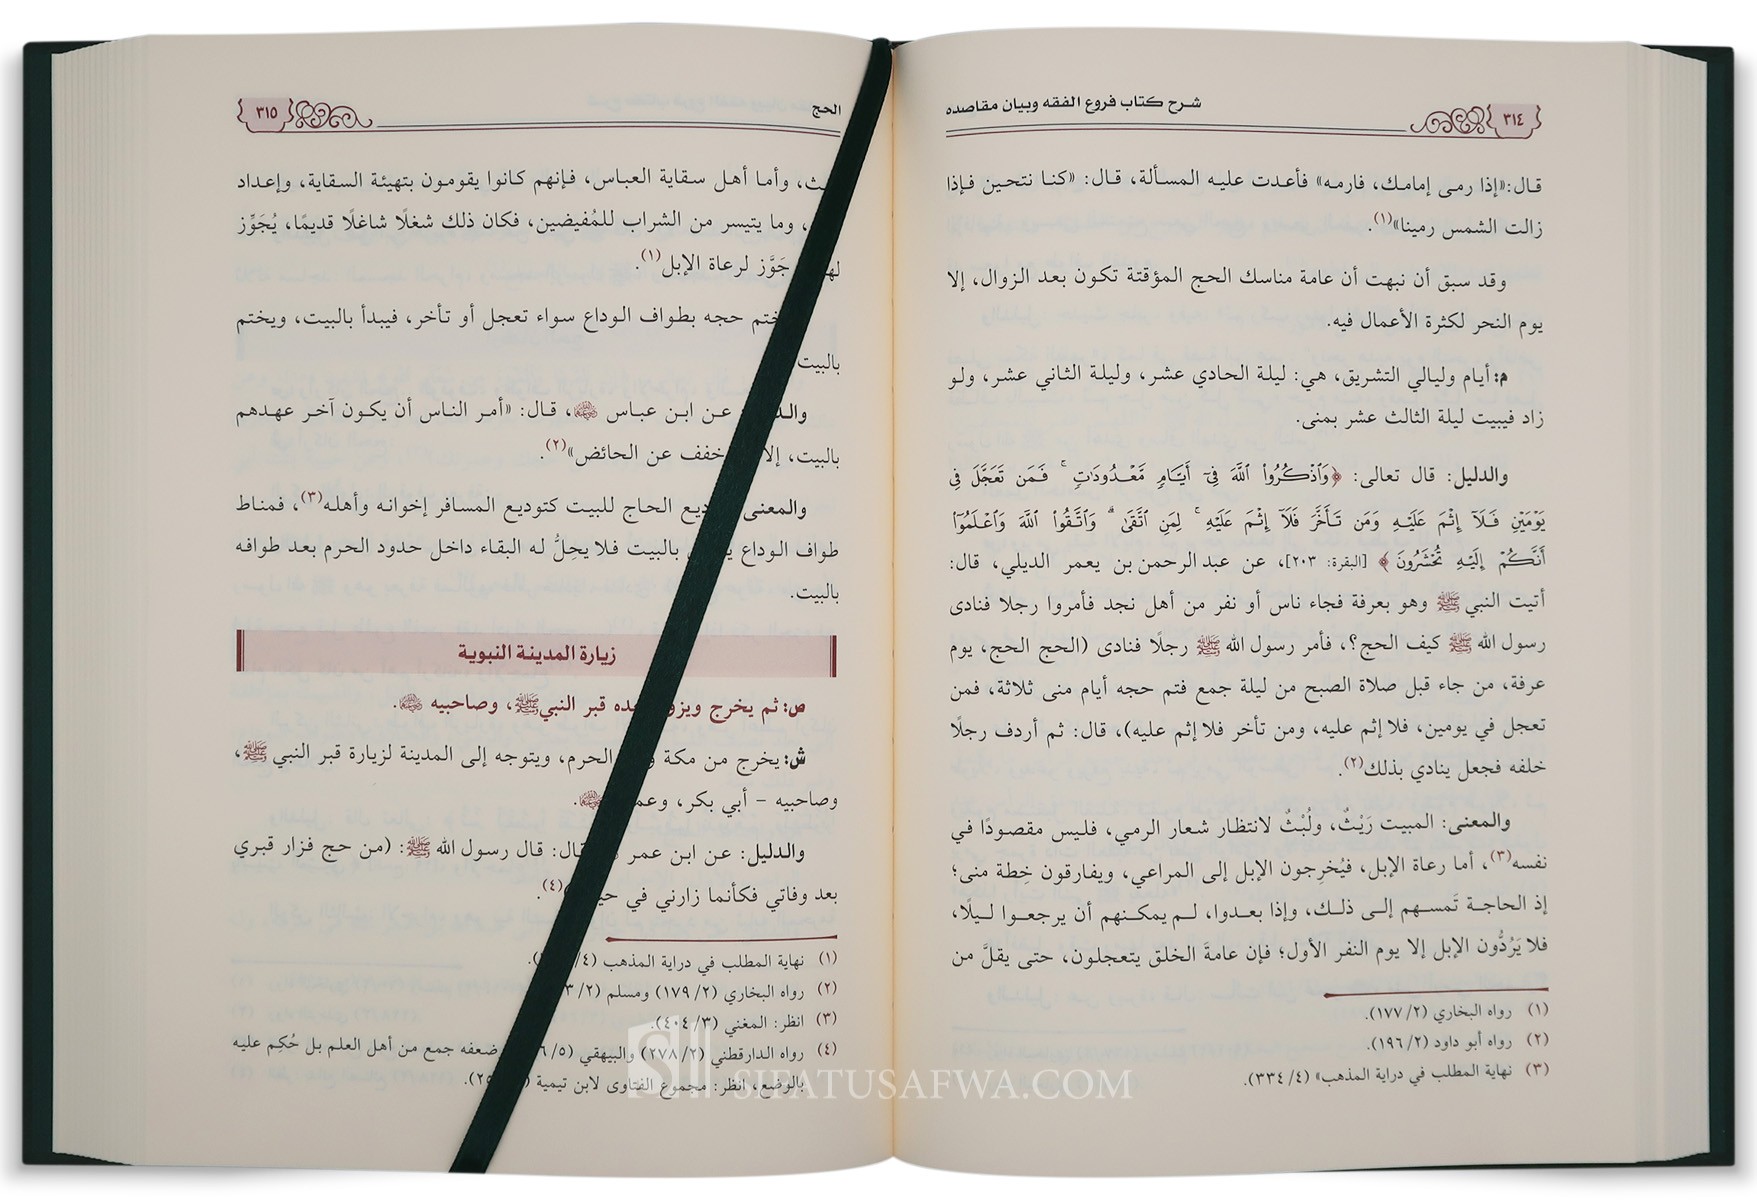 شرح كتاب فروع الفقه وبيان مقاصده
٣١٤
قال: «إذا رمى إمامك، فارمه» فأعدت عليه المسألة، قال: «كنا نتحين فإذا
زالت الشمس رمينا»(١).
وقد سبق أن نبهت أن عامة مناسك الحج المؤقتة تكون بعد الزوال، إلا
يوم النحر لكثرة الأعمال فيه.
م: أيام وليالي التشريق، هي: ليلة الحادي عشر، وليلة الثاني عشر، ولو
زاد فيبيت ليلة الثالث عشر بمنى.
والدليل: قال تعالى: ﴿وَٱذْكُرُوا۟ ٱللَّهَ فِىٓ أَيَّامٍ مَّعْدُودَٰتٍ ۚ فَمَن تَعَجَّلَ فِى
يَوْمَيْنِ فَلَآ إِثْمَ عَلَيْهِ وَمَن تَأَخَّرَ فَلَآ إِثْمَ عَلَيْهِ ۚ لِمَنِ ٱتَّقَىٰ ۗ وَٱتَّقُوا۟ ٱللَّهَ وَٱعْلَمُوٓا۟
أَنَّكُمْ إِلَيْهِ تُحْشَرُونَ﴾ [البقرة: ٢٠٣]، عن عبد الرحمن بن يعمر الديلي، قال:
أتيت النبي ﷺ وهو بعرفة فجاء ناس أو نفر من أهل نجد فأمروا رجلا فنادى
رسول الله ﷺ كيف الحج؟، فأمر رسول الله ﷺ رجلًا فنادى (الحج الحج، يوم
عرفة، من جاء قبل صلاة الصبح من ليلة جمع فتم حجه أيام منى ثلاثة، فمن
تعجل في يومين، فلا إثم عليه، ومن تأخر فلا إثم عليه)، قال: ثم أردف رجلًا
خلفه فجعل ينادي بذلك(٢).
والمعنى: المبيت رَيْثٌ، ولُبْثٌ لانتظار شعار الرمي، فليس مقصودًا في
نفسه(٣)، أما رعاة الإبل، فيُخرِجون الإبل إلى المراعي، ويفارقون خِطة منى؛
إذ الحاجة تَمسهم إلى ذلك، وإذا بعدوا، لم يمكنهم أن يرجعوا ليلًا،
فلا يَرُدُّون الإبل إلا يوم النفر الأول؛ فإن عامةَ الخلق يتعجلون، حتى يقلَّ من
(١) رواه البخاري (٢/ ١٧٧).
(٢) رواه أبو داود (٢/ ١٩٦).
(٣) نهاية المطلب في دراية المذهب» (٤/ ٣٣٤).
الحج
٣١٥
وأما أهل سقاية العباس، فإنهم كانوا يقومون بتهيئة السقاية، وإعداد
وما يتيسر من الشراب للمُفيضين، فكان ذلك شغلًا شاغلًا قديمًا، يُجَوِّز
جَوَّز لرعاة الإبل(١).
حجه بطواف الوداع سواء تعجل أو تأخر، فيبدأ بالبيت، ويختم
بالبيت
عن ابن عباس ﵄، قال: «أمر الناس أن يكون آخر عهدهم
بالبيت، خفف عن الحائض»(٢).
والمعنى الحاج للبيت كتوديع المسافر إخوانه وأهله(٣)، فمناط
طواف الوداع بالبيت فلا يحِلُّ له البقاء داخل حدود الحرم بعد طوافه
بالبيت.
زيارة المدينة النبوية
ص: ثم يخرج قبر النبي ﷺ، وصاحبيه ﵄.
ش: يخرج من مكة الحرم، ويتوجه إلى المدينة لزيارة قبر النبي ﷺ،
وصاحبيه – أبي بكر، ﵄.
والدليل: عن ابن عمر قال: قال رسول الله ﷺ: (من حج فزار قبري
بعد وفاتي فكأنما زارني في (٤).
(١) نهاية المطلب في دراية المذهب
(٢) رواه البخاري (٢/ ١٧٩) ومسلم
(٣) انظر: المغني (٣/ ٤٠٤).
(٤) رواه الدارقطني (٢/ ٢٧٨) والبيهقي ضعفه جمع من أهل العلم بل حُكِم عليه
بالوضع، انظر: مجموع الفتاوى لابن تيمية
SIFATUSAFWA.COM